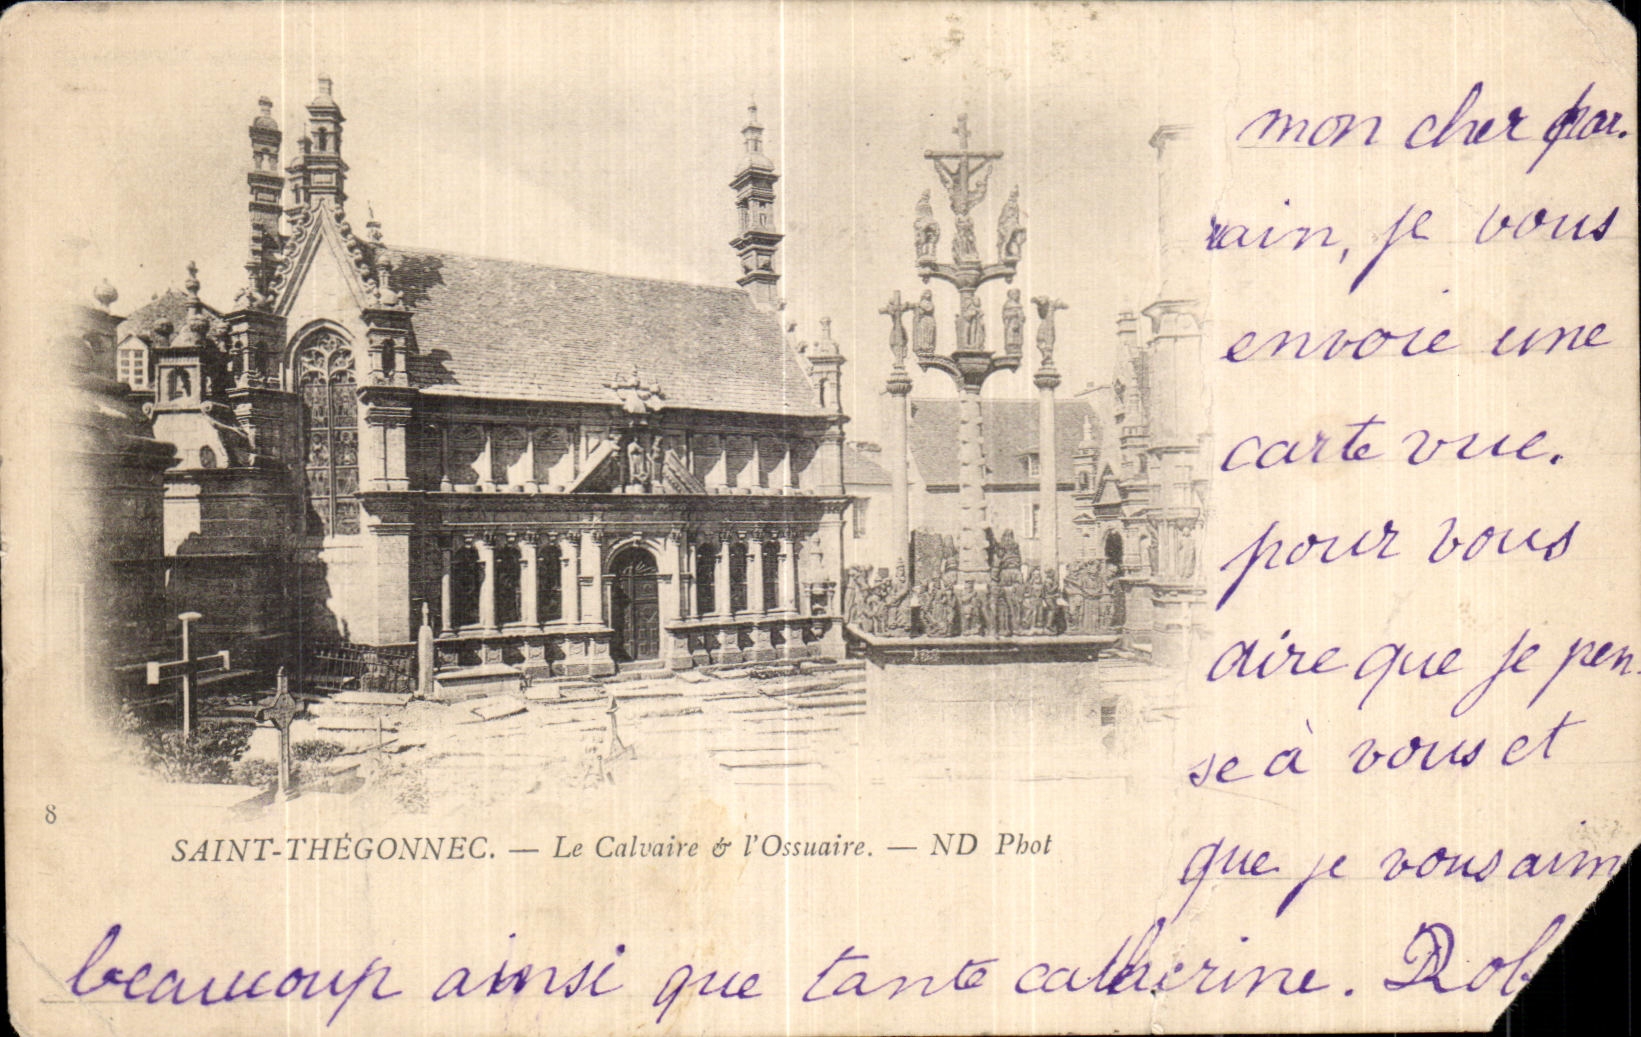 mon cher par.
rain, je vous
envoie une
carte vue.
pour vous
dire que je pen.
se à vous et
que je vous aim
beaucoup ainsi que tante catherine. Rob
8
SAINT-THÉGONNEC. — Le Calvaire & l'Ossuaire. — ND Phot